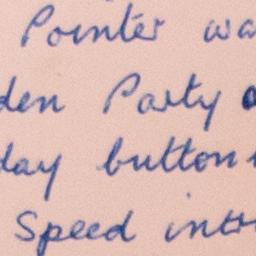 Pointer wa
den Party
day button
Speed intr